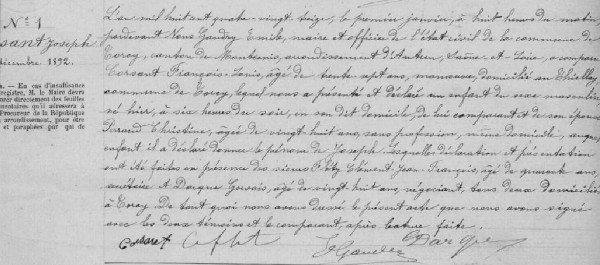 N° 1
sant Joseph
décembre 1892.
s. — En cas d'insuffisance
registre, M. le Maire devra
directement des feuilles
qu'il adressera à
Procureur de la République
arrondissement, pour être
et paraphées par qui de
L'an mil huit cent quatre-vingt treize, le premier janvier, à huit heures du matin
pardevant Nous Gaudry Emile, maire et officier de l'état civil de la commune de
Torcy, canton de Montcenis, arrondissement d'Autun, Saône-et-Loire, a comparu
François Louis, âgé de trente sept ans, manœuvre, domicilié au
commune de Torcy, lequel nous a présenté et déclaré un enfant du sexe masculin
né hier, à six heures du soir, en son dit domicile, de lui comparant et de son épouse
Christine, âgée de vingt huit ans, sans profession, même domicile, auquel
enfant il a déclaré donner le prénom de Joseph. Lesquelles déclaration et présentation
ont été faites en présence des sieurs Clément Jean François, âgé de quarante ans,
et Dargue Gervais, âgé de vingt huit ans, négociant, tous deux domiciliés
à Torcy. De tout quoi nous avons dressé le présent acte que nous avons signé
avec les deux témoins et le comparant, après lecture faite.
E Gaudry Dargue